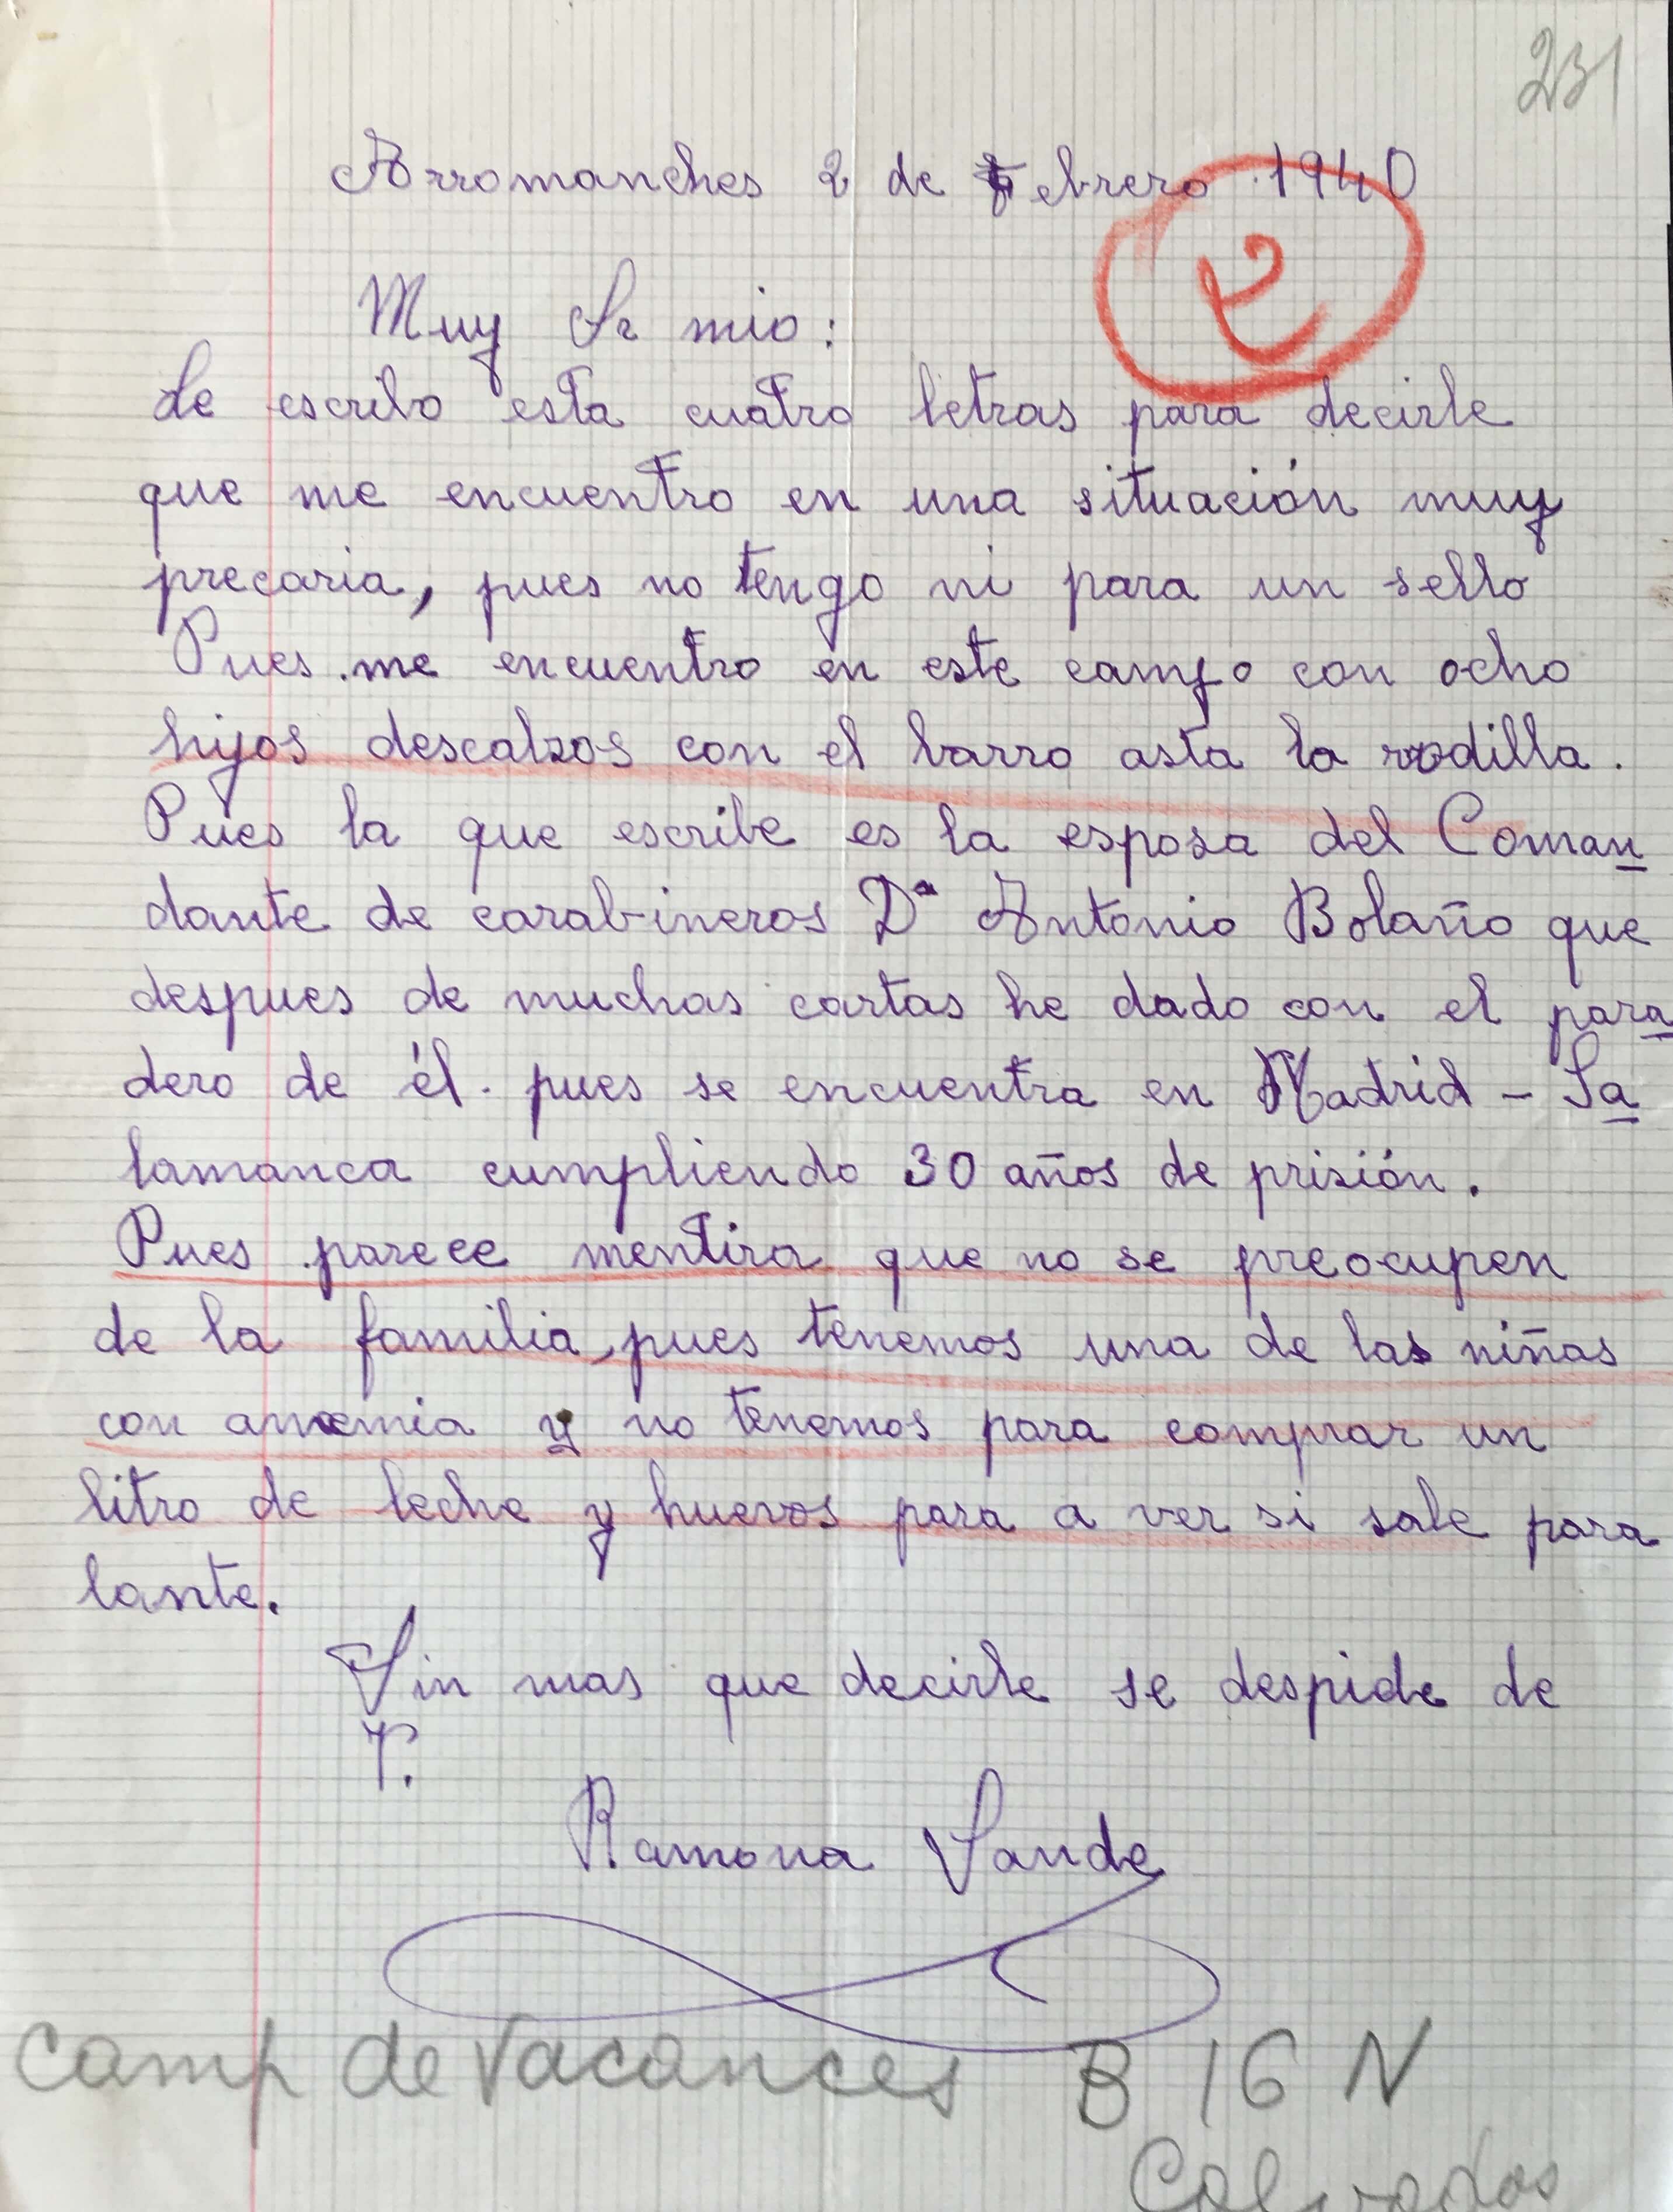 231
Arromanches 2 de Febrero 1940
2
Muy Sr mio:
Le escribo esta cuatro letras para decirle
que me encuentro en una situación muy
precaria, pues no tengo ni para un sello
Pues me encuentro en este campo con ocho
hijos descalzos con el barro asta la rodilla.
Pues la que escribe es la esposa del Coman
dante de carabineros Dn Antonio Bolaño que
despues de muchas cartas he dado con el para
dero de él. pues se encuentra en Madrid - Sa
lamanca cumpliendo 30 años de prisión.
Pues parece mentira que no se preocupen
de la familia, pues tenemos una de las niñas
con anemia y no tenemos para comprar un
litro de leche y huevos para a ver si sale para
lante.
Sin mas que decirle se despide de
V.
Ramona Sande
Camp de Vacances B 16 N
Calvados